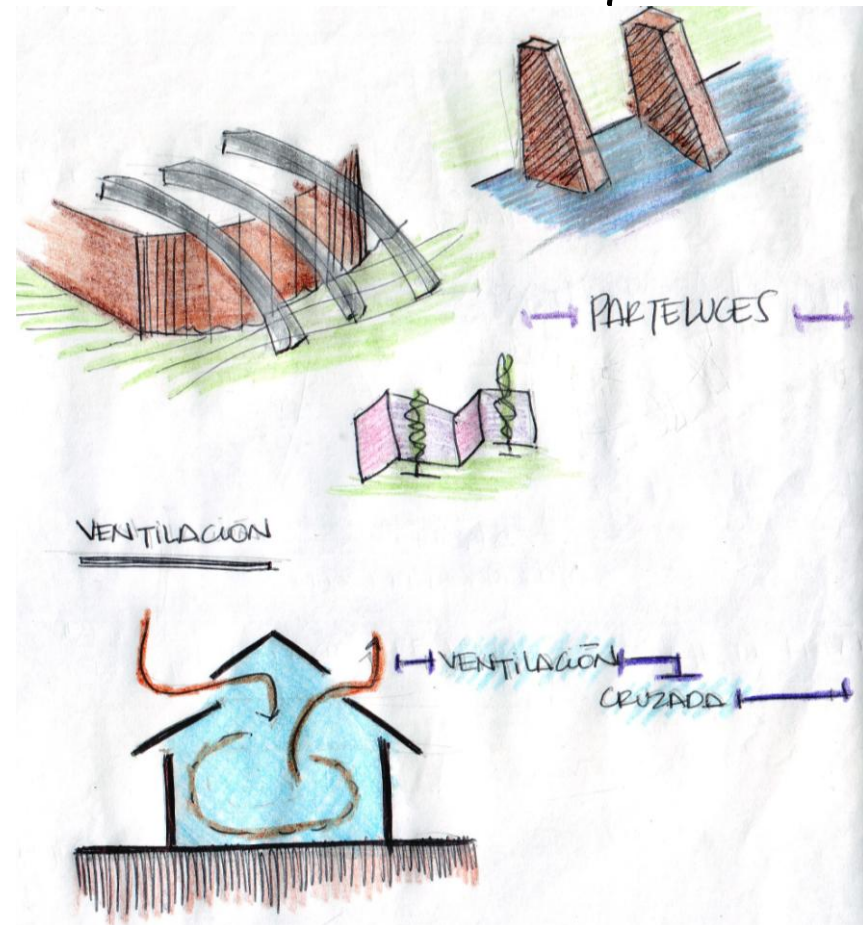 PARTELUCES
VENTILACIÓN
VENTILACIÓN
CRUZADA